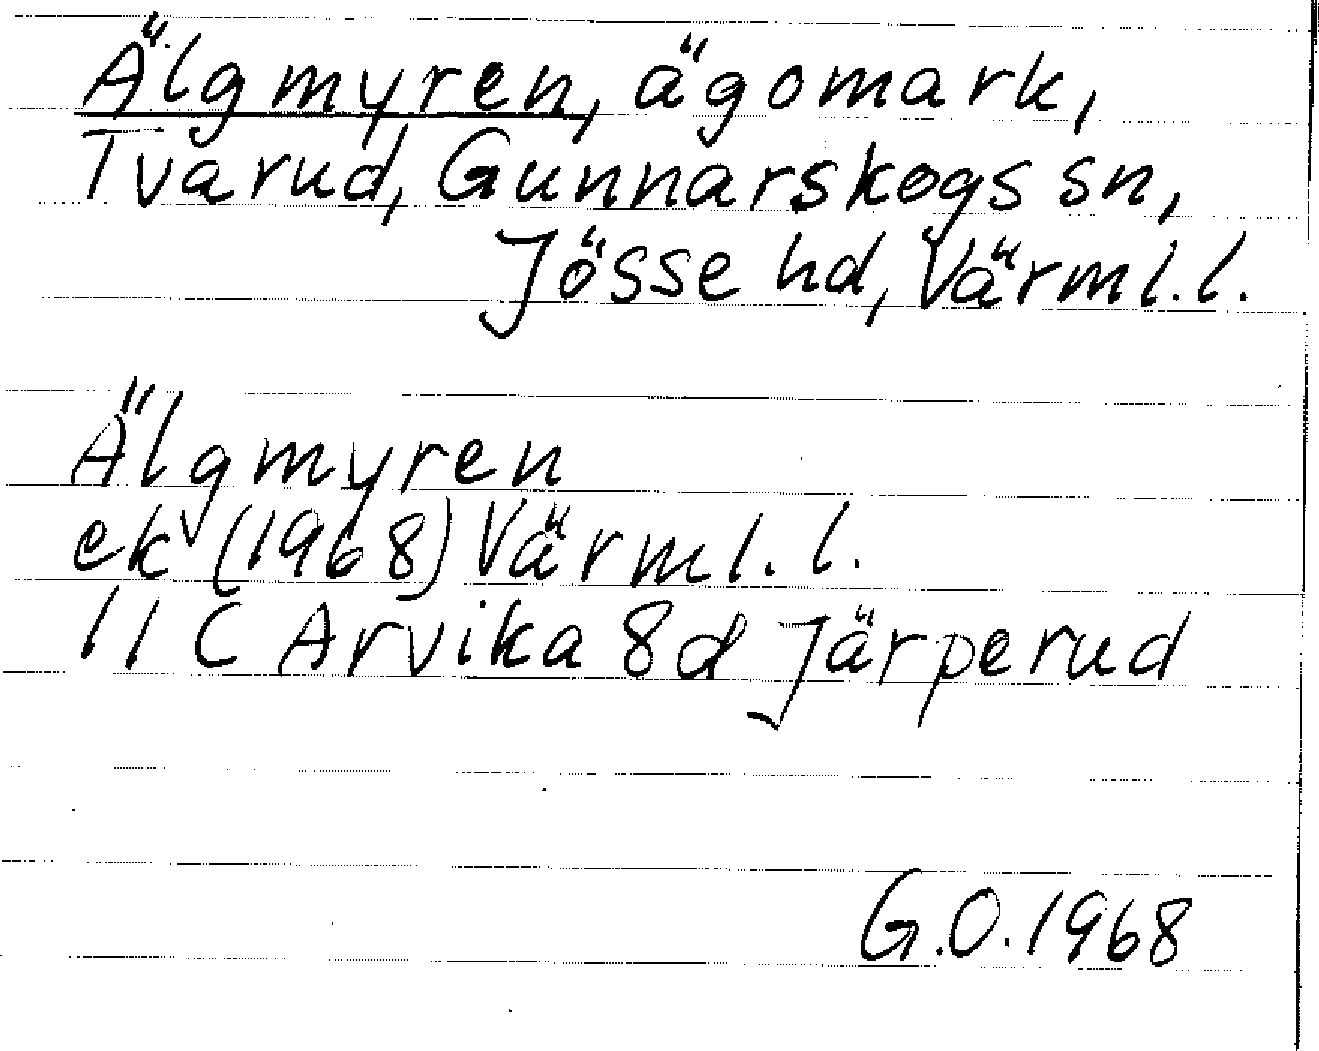 Älgmyren, ägomark,
Tvarud, Gunnarskogs sn,
Jösse hd, Värml.l.
Älgmyren
ek (1968) Värml.l.
11 C Arvika 8d Järperud
G.O. 1968